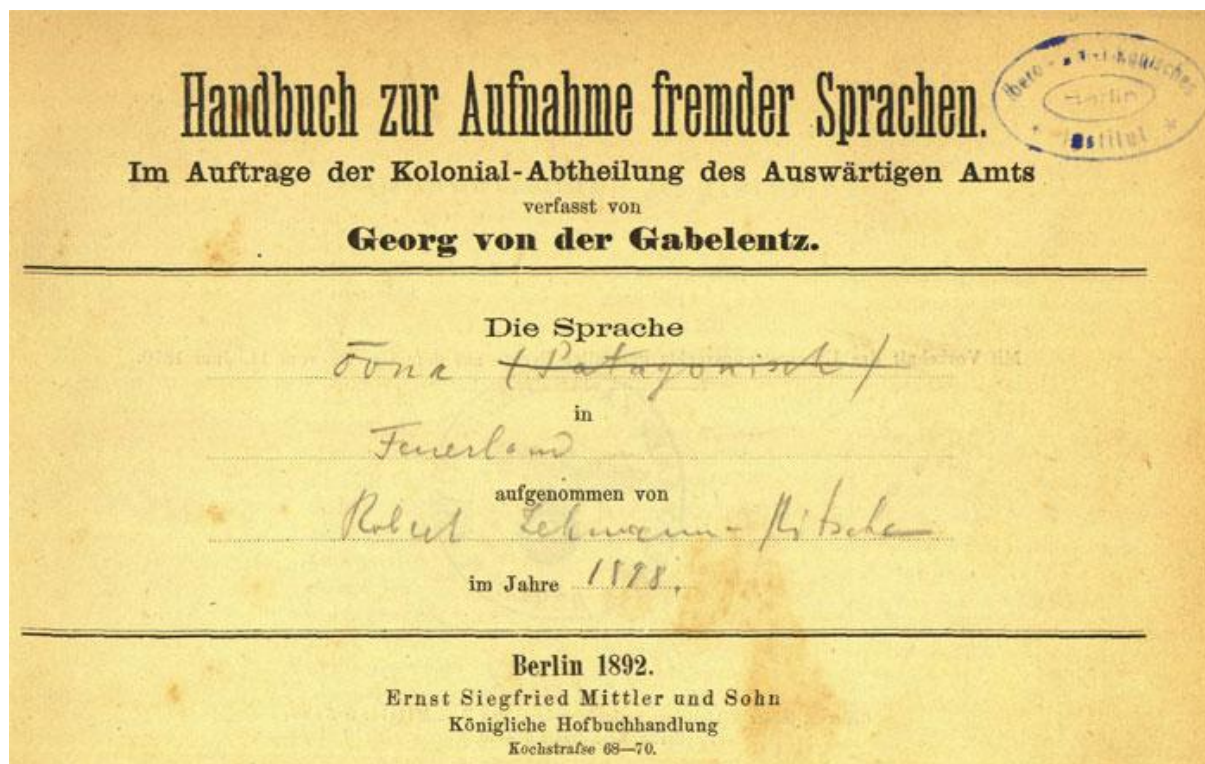 Handbuch zur Aufnahme fremder Sprachen.
Im Auftrage der Kolonial-Abtheilung des Auswärtigen Amts
verfasst von
Georg von der Gabelentz.
Die Sprache
(Patagonisch)
in
Feuerland
aufgenommen von
Robert Lehmann-Nitsche
im Jahre 1898.
Berlin 1892.
Ernst Siegfried Mittler und Sohn
Königliche Hofbuchhandlung
Kochstraſse 68—70.
Berlin
Institut